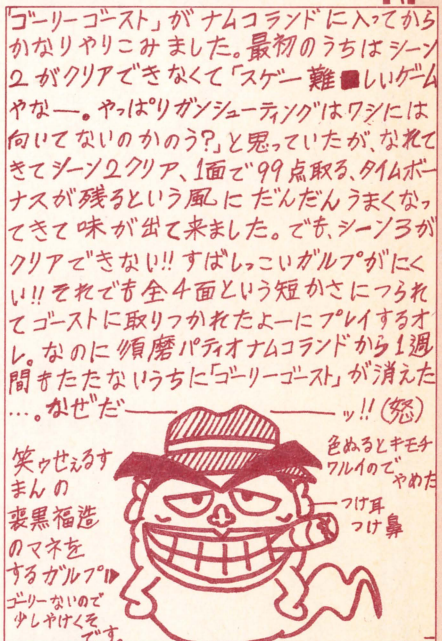 「ゴーリーゴースト」がナムコランドに入ってから
かなりやりこみました。最初のうちはシーン
2がクリアできなくて「スゲー難■しいゲーム
やなー。やっぱりガンシューティングはワシには
向いてないのかのう?」と思っていたが、なれて
きてシーン2クリア、1面で99点取る、タイムボー
ナスが残るという風にだんだんうまくなっ
てきて味が出て来ました。でも、シーン3が
クリアできない!!すばしっこいガルプがにく
い!!それでも全4面という短かさにつられ
てゴーストに取りつかれたよーにプレイするオ
レ。なのに須磨パティオナムコランドから1週
間もたたないうちに「ゴーリーゴースト」が消えた
…。なぜだ――――ッ!!(怒)
色ぬるとキモチ
ワルイので
やめた
つけ耳
つけ鼻
笑ゥせぇるす
まんの
喪黒福造
のマネを
するガルプ
ゴーリーないので
少しやけくそ
です。